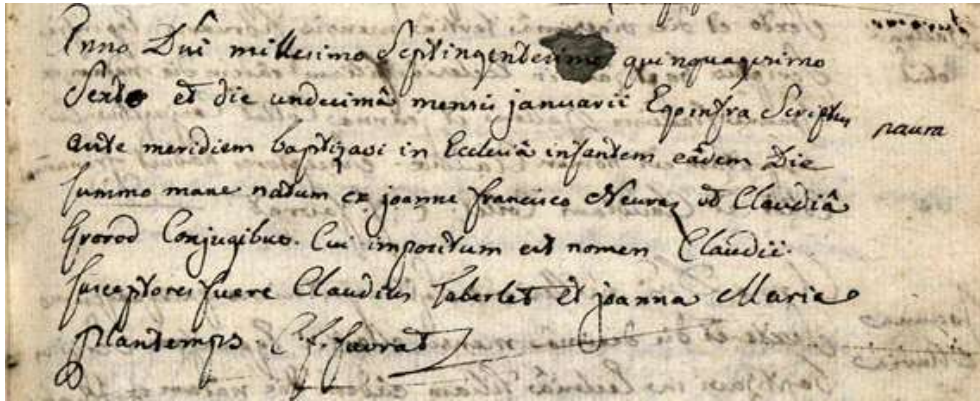 Anno Dni millesimo Septingentesimo quinquagesimo
Sexto et die undecimâ mensis januarii Ego infra Scriptus
ante meridiem baptizavi in Ecclesiâ infantem eâdem Die
summo mane natum ex joanne francisco Neuraz et Claudiâ
Grorod Conjugibus. Cui impositum est nomen Claudii.
susceptores fuere Claudius Taberlet et joanna Maria
plantemps C. f. favrat